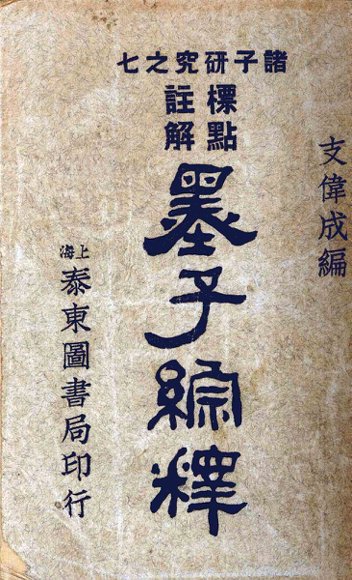 諸子研究之七
標點
註解
墨子綜釋
支偉成編
上海
泰東圖書局印行